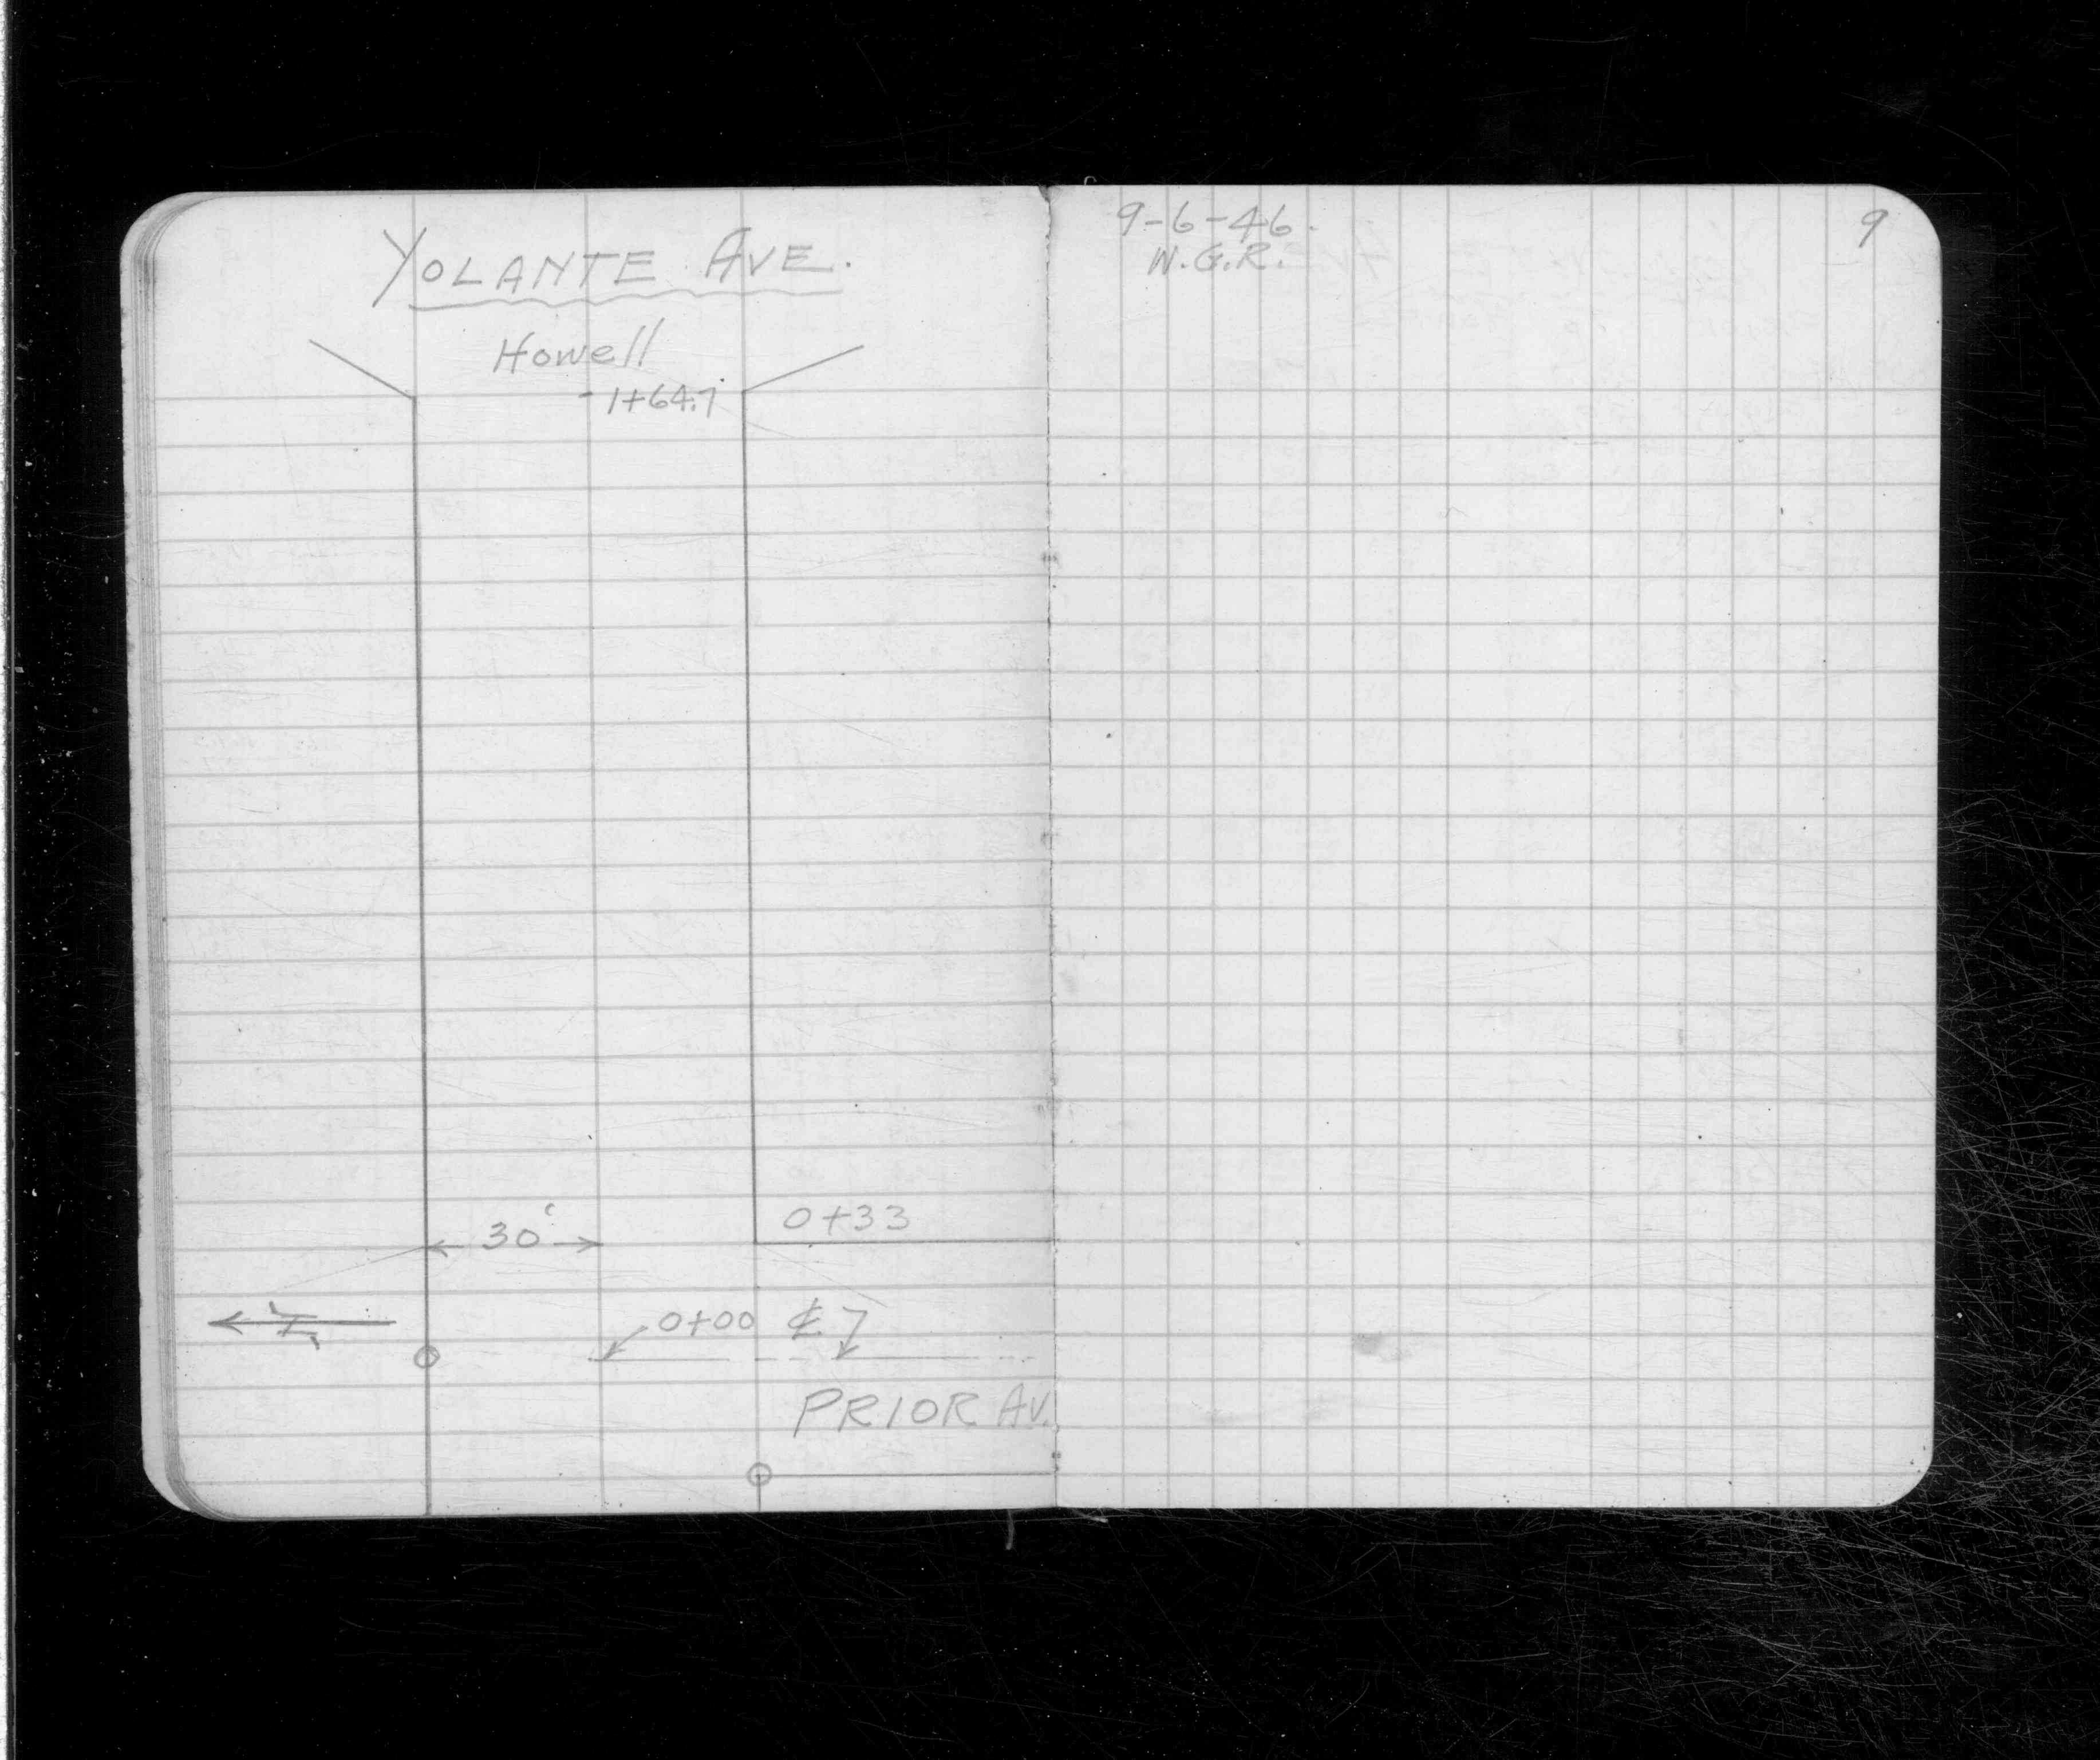 YOLANTE AVE.
Howell
1+64.7
30'
0+33
0+00 ℄
PRIOR AV.
9-6-46.
W.G.R.
9